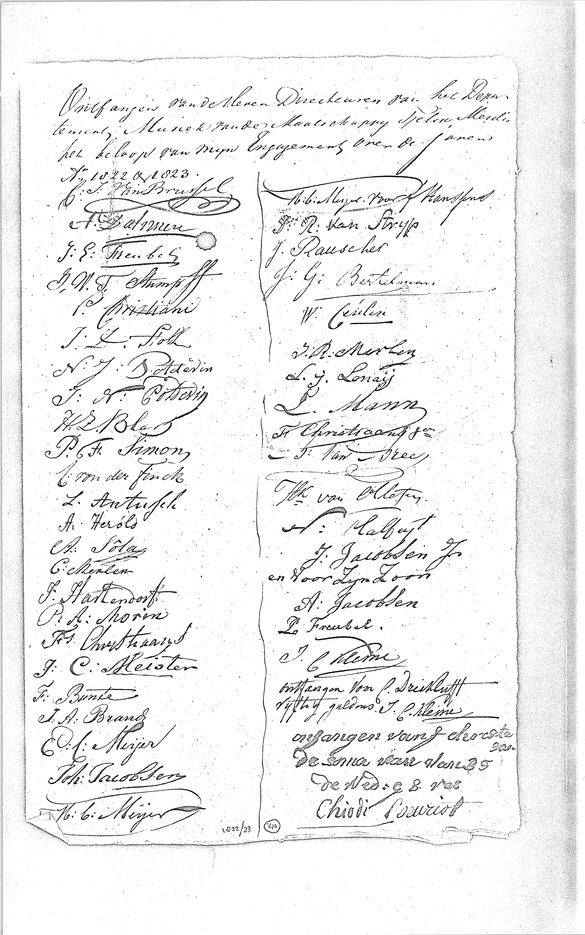 Ontfangen van de Heeren Directeuren van het Depar-
tement, Muziek van de Maatschappij Felix Meritis
het beloop van mijn Engagement, over de Jaaren
Ao. 1822 & 1823.
C. F. Van Brussel
A. Dahmen
J: E: Freubel
J. W. T. Stumpff
P. Christiani
J. L. Folk
N. J: Potdevin
J: N: Potdevin
H Z Blas
P. F. Simon
C. von der Finck
L. Antusch
A. Herold
A. Sola
C: Merlen
F. Hartendorff
P. A: Morin
Frs. Christiaans
J: C: Meister
F: Bunte
J. A. Brand
Ed: C: Meijer
Joh: Jacobsen
H: C: Meijer
H: C: Meijer voor F Hanssens
J: R: van Stryp
J. Rauscher
J: G: Bertelman
W: Ceulen
J. R. Merlen
L. J. Lenaij
L. Mann
Fr Christiaans Jr
J: Van Bree
Wk van Ollefen
N: Halfast
J. Jacobsen Jr
en Voor Zyn Zoon
A: Jacobsen
P Freubel.
J. C Kleine
ontfangen von C. Dreckluft
vijftig guldens J. C. Kleine
onfangen van
de somma van van 35
de Ned:
Chiodi
1022/23
240